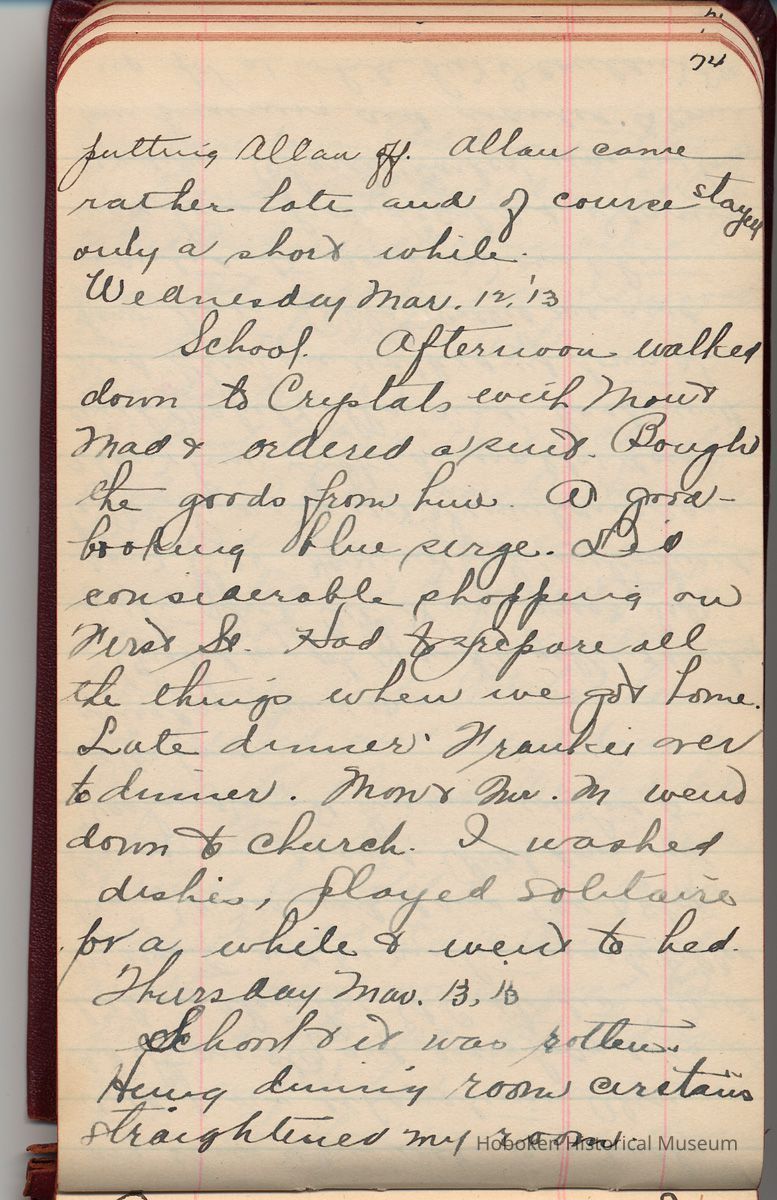 74
putting Allan off. Allan came
rather late and of course stayed
only a short while.
Wednesday Mar. 12, '13
School. Afternoon walked
down to Crystals with Mom &
Mad & ordered a suit. Bought
the goods from him. A good-
looking blue serge. Did
considerable shopping on
First St. Had to prepare all
the things when we got home.
Late dinner. Frankie over
to dinner. Mom & Mr. M went
down to church. I washed
dishes, played solitaire
for a while & went to bed.
Thursday Mar. 13, 13
School & it was rotten.
Hung dining room curtains
straightened my room.
Hoboken Historical Museum